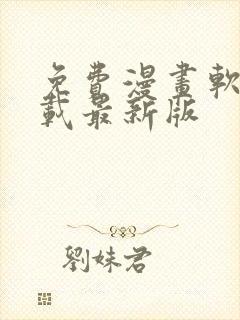 免費漫畫軟
載最新版
劉妹君